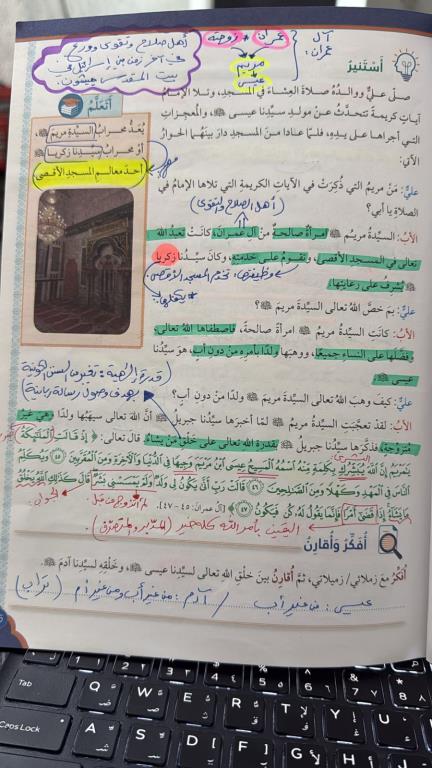 آل عمران:
عمران + زوجته
مريم
عيسى
أهل صلاح وتقوى وورع
في آخر زمن من إسرائيل في
بيت المقدس
أَسْتَنيرُ
صلّى عليٌّ ووالدُهُ صلاةَ العِشاءِ في المسجدِ، وتلا الإمامُ
آياتٍ كريمةً تتحدَّثُ عنْ مولدِ سيّدِنا عيسى ﷺ، والمعجزاتِ
التي أجراها على يدِهِ، فلمّا عادا منَ المسجدِ دارَ بينَهُما الحوارُ
الآتي:
أَتَعَلَّمُ
يُعَدُّ محرابُ السيّدةِ مريمَ،
أوْ محرابُ سيّدِنا زكريا
أحدَ معالمِ المسجدِ الأقصى
عليٌّ: مَنْ مريمُ التي ذُكِرَتْ في الآياتِ الكريمةِ التي تلاها الإمامُ في
الصلاةِ يا أبي؟
(أهل الصلاح والتقوى)
الأبُ: السيّدةُ مريمُ ﷺ امرأةٌ صالحةٌ منْ آلِ عمرانَ، كانَتْ تعبدُ اللهَ
تعالى في المسجدِ الأقصى، وتقومُ على خدمتِهِ، وكانَ سيّدُنا زكريا
ﷺ يُشرِفُ على رعايتِها.
وظيفتها: تخدم المسجد الأقصى
عليٌّ: بمَ خصَّ اللهُ تعالى السيّدةَ مريمَ ﷺ؟
الأبُ: كانَتِ السيّدةُ مريمُ ﷺ امرأةً صالحةً، فاصطفاها اللهُ تعالى،
وفضّلَها على النساءِ جميعًا، ووهبَها ولدًا بأمرِهِ منْ دونِ أبٍ، هوَ سيّدُنا
عيسى ﷺ.
قدرة إلهية: تغيير السنن الكونية
بهدف وصول رسالة ربانية
عليٌّ: كيفَ وهبَ اللهُ تعالى السيّدةَ مريمَ ﷺ ولدًا منْ دونِ أبٍ؟
الأبُ: لقدْ تعجَّبَتِ السيّدةُ مريمُ ﷺ لمّا أخبرَها سيّدُنا جبريلُ ﷺ أنَّ اللهَ تعالى سيهبُها ولدًا وهيَ غيرُ
متزوّجةٍ، فذكّرَها سيّدُنا جبريلُ ﷺ بقدرةِ اللهِ تعالى على خلقِ مَنْ يشاءُ. قالَ تعالى: ﴿إِذْ قَالَتِ الْمَلَائِكَةُ
يَا مَرْيَمُ إِنَّ اللَّهَ يُبَشِّرُكِ بِكَلِمَةٍ مِنْهُ اسْمُهُ الْمَسِيحُ عِيسَى ابْنُ مَرْيَمَ وَجِيهًا فِي الدُّنْيَا وَالْآخِرَةِ وَمِنَ الْمُقَرَّبِينَ ٤٥ وَيُكَلِّمُ
النَّاسَ فِي الْمَهْدِ وَكَهْلًا وَمِنَ الصَّالِحِينَ ٤٦ قَالَتْ رَبِّ أَنَّى يَكُونُ لِي وَلَدٌ وَلَمْ يَمْسَسْنِي بَشَرٌ قَالَ كَذَلِكِ اللَّهُ يَخْلُقُ
مَا يَشَاءُ إِذَا قَضَى أَمْرًا فَإِنَّمَا يَقُولُ لَهُ كُنْ فَيَكُونُ ٤٧﴾ [آل عمران: ٤٥-٤٧].
لم أتزوج من قبل
اليقين بأمر الله كله خير
أُفَكِّرُ وَأُقارِنُ
أُفكّرُ معَ زملائي/ زميلاتي، ثمَّ أُقارِنُ بينَ خلقِ اللهِ تعالى لسيّدِنا عيسى ﷺ، وخلقِهِ لسيّدِنا آدمَ ﷺ.
عيسى: من غير أب / آدم: من غير أب ومن غير أم (تراب)
Tab Q W E R T Y U
Caps Lock A S D F G H J